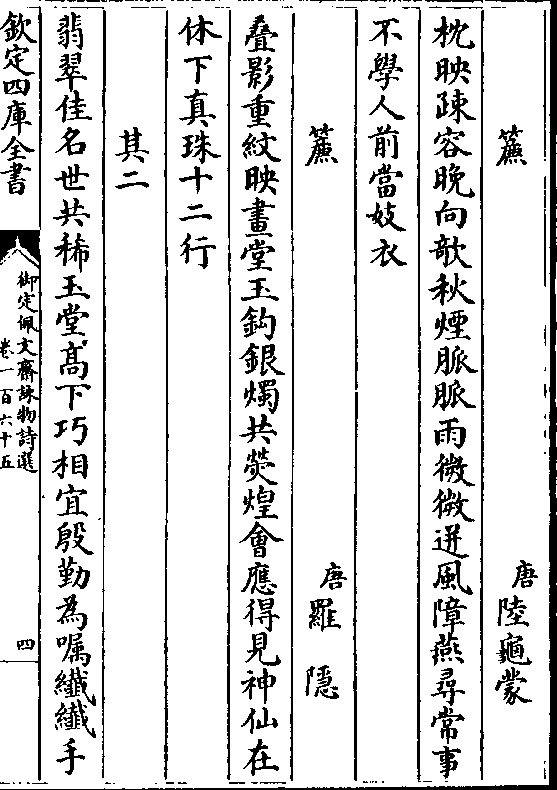 簾　唐陸龜蒙
枕映疎容晚向欹秋煙脈脈雨微微逬風障燕尋常事
不學人前當妓衣
簾　唐羅隱
疊影重紋映畫堂玉鈎銀燭共熒煌會應得見神仙在
休下真珠十二行
其二
翡翠佳名世共稀玉堂高下巧相宜殷勤為嘱纖纖手
欽定四庫全書
御定佩文齋詠物詩選
卷一百六十五
四